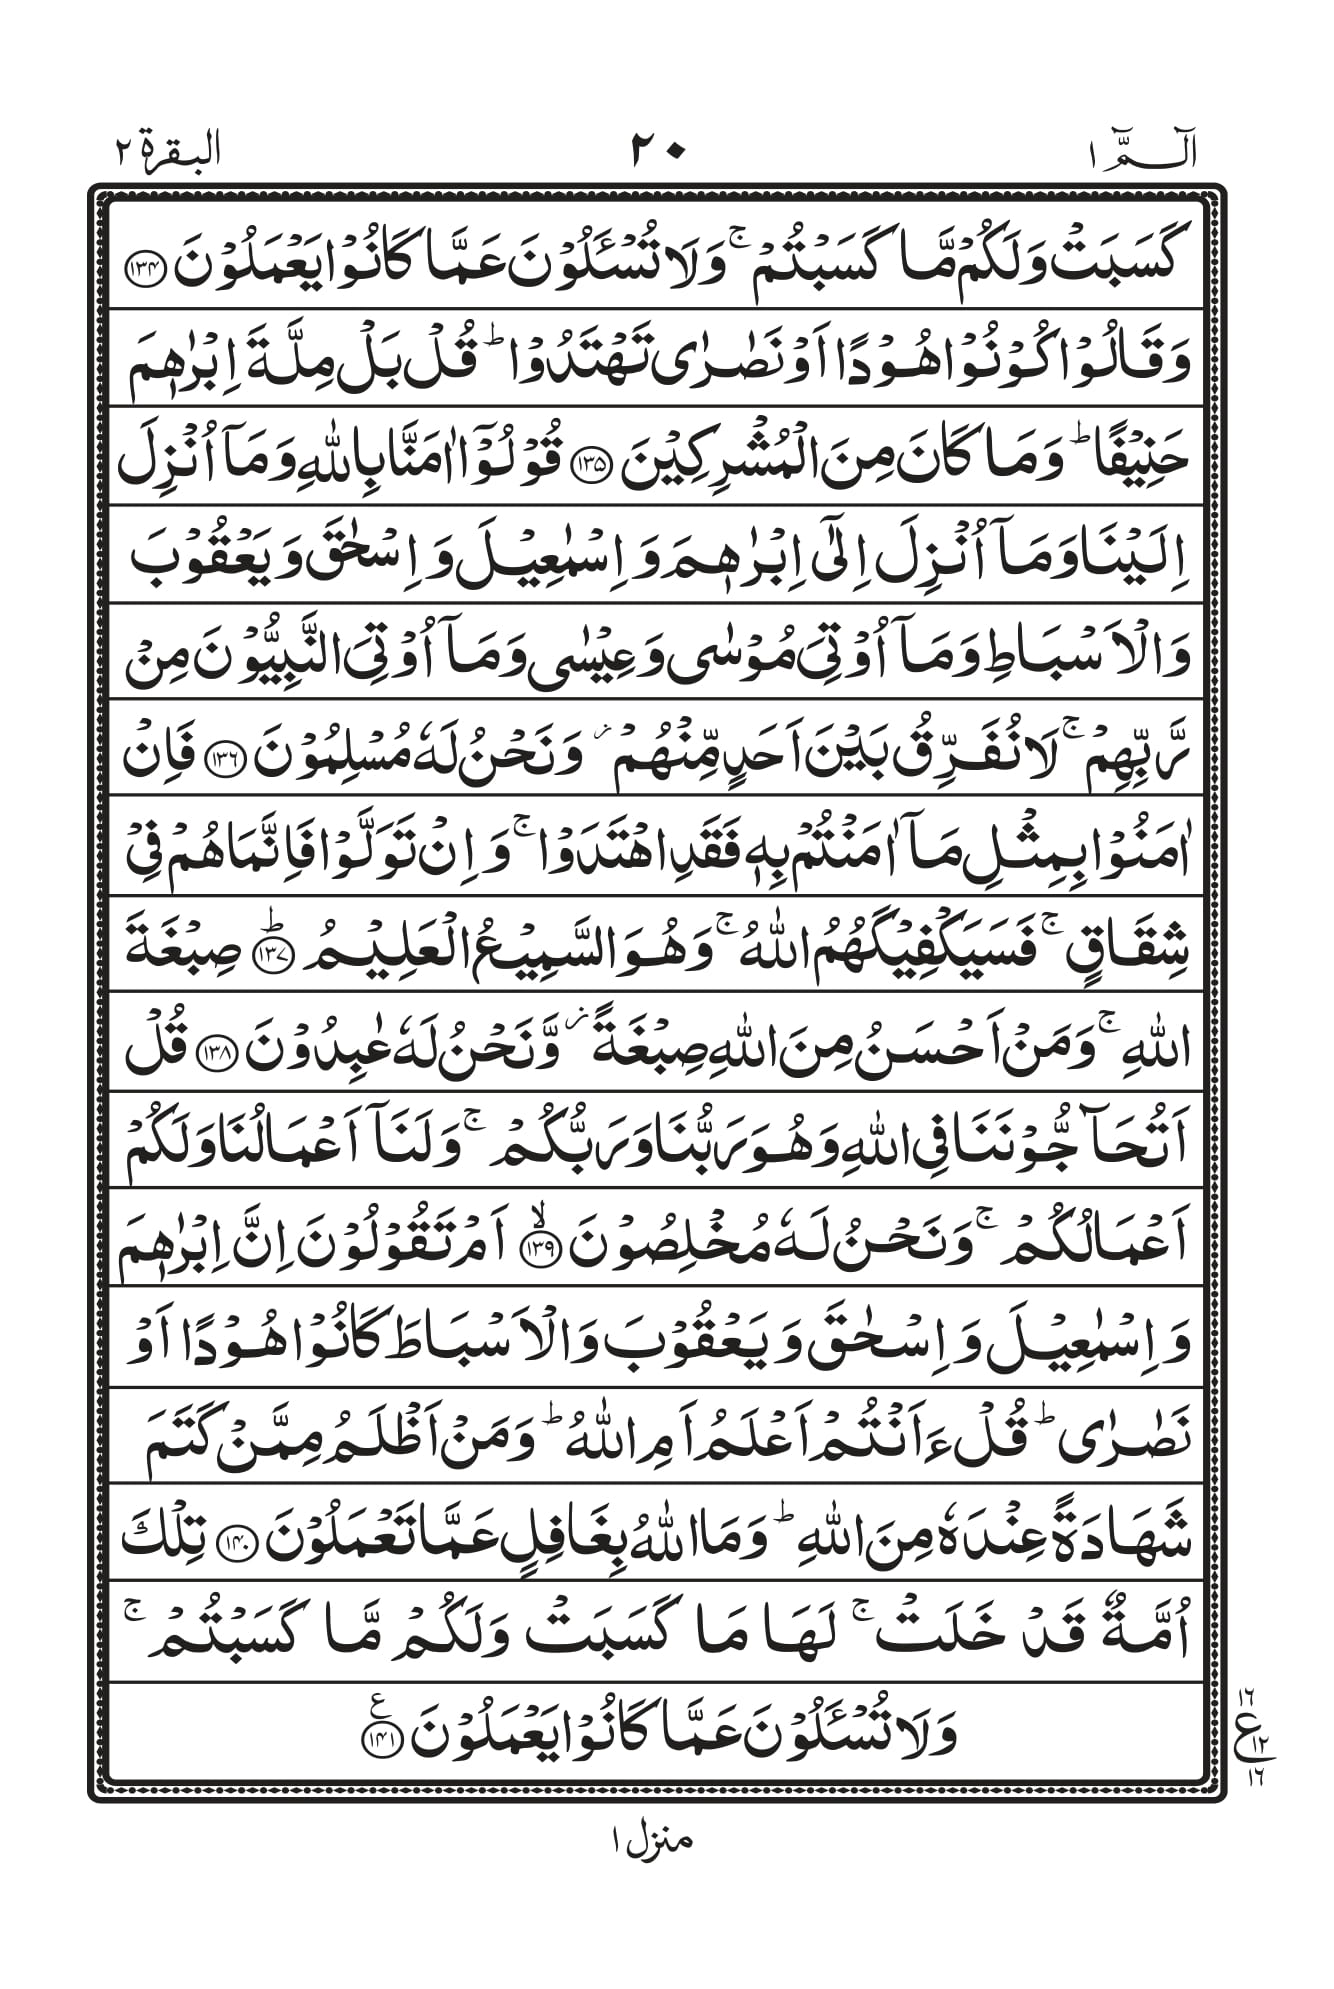 الٓـمّٓ ١
٢٠
البقرة ٢
كَسَبَتْ وَلَكُمْ مَّا كَسَبْتُمْ ۚ وَلَا تُسْـَٔلُوْنَ عَمَّا كَانُوْا يَعْمَلُوْنَ ﴿۱۳۴﴾
وَقَالُوْا كُوْنُوْا هُوْدًا اَوْ نَصٰرٰى تَهْتَدُوْا ؕ قُلْ بَلْ مِلَّةَ اِبْرٰهٖمَ
حَنِيْفًا ؕ وَمَا كَانَ مِنَ الْمُشْرِكِيْنَ ﴿۱۳۵﴾ قُوْلُوْٓا اٰمَنَّا بِاللّٰهِ وَمَآ اُنْزِلَ
اِلَيْنَا وَمَآ اُنْزِلَ اِلٰٓى اِبْرٰهٖمَ وَاِسْمٰعِيْلَ وَاِسْحٰقَ وَيَعْقُوْبَ
وَالْاَسْبَاطِ وَمَآ اُوْتِيَ مُوْسٰى وَعِيْسٰى وَمَآ اُوْتِيَ النَّبِيُّوْنَ مِنْ
رَّبِّهِمْ ۚ لَا نُفَرِّقُ بَيْنَ اَحَدٍ مِّنْهُمْ ز وَنَحْنُ لَهٗ مُسْلِمُوْنَ ﴿۱۳۶﴾ فَاِنْ
اٰمَنُوْا بِمِثْلِ مَآ اٰمَنْتُمْ بِهٖ فَقَدِ اهْتَدَوْا ۚ وَاِنْ تَوَلَّوْا فَاِنَّمَا هُمْ فِيْ
شِقَاقٍ ۚ فَسَيَكْفِيْكَهُمُ اللّٰهُ ۚ وَهُوَ السَّمِيْعُ الْعَلِيْمُ ﴿۱۳۷﴾ؕ صِبْغَةَ
اللّٰهِ ۚ وَمَنْ اَحْسَنُ مِنَ اللّٰهِ صِبْغَةً ز وَّنَحْنُ لَهٗ عٰبِدُوْنَ ﴿۱۳۸﴾ قُلْ
اَتُحَآجُّوْنَنَا فِي اللّٰهِ وَهُوَ رَبُّنَا وَرَبُّكُمْ ۚ وَلَنَآ اَعْمَالُنَا وَلَكُمْ
اَعْمَالُكُمْ ۚ وَنَحْنُ لَهٗ مُخْلِصُوْنَ ﴿۱۳۹﴾ۙ اَمْ تَقُوْلُوْنَ اِنَّ اِبْرٰهٖمَ
وَاِسْمٰعِيْلَ وَاِسْحٰقَ وَيَعْقُوْبَ وَالْاَسْبَاطَ كَانُوْا هُوْدًا اَوْ
نَصٰرٰى ؕ قُلْ ءَاَنْتُمْ اَعْلَمُ اَمِ اللّٰهُ ؕ وَمَنْ اَظْلَمُ مِمَّنْ كَتَمَ
شَهَادَةً عِنْدَهٗ مِنَ اللّٰهِ ؕ وَمَا اللّٰهُ بِغَافِلٍ عَمَّا تَعْمَلُوْنَ ﴿۱۴۰﴾ تِلْكَ
اُمَّةٌ قَدْ خَلَتْ ۚ لَهَا مَا كَسَبَتْ وَلَكُمْ مَّا كَسَبْتُمْ ۚ
وَلَا تُسْـَٔلُوْنَ عَمَّا كَانُوْا يَعْمَلُوْنَ ﴿۱۴۱﴾ ع
١٦
ع ١٢
١٦
منزل ١